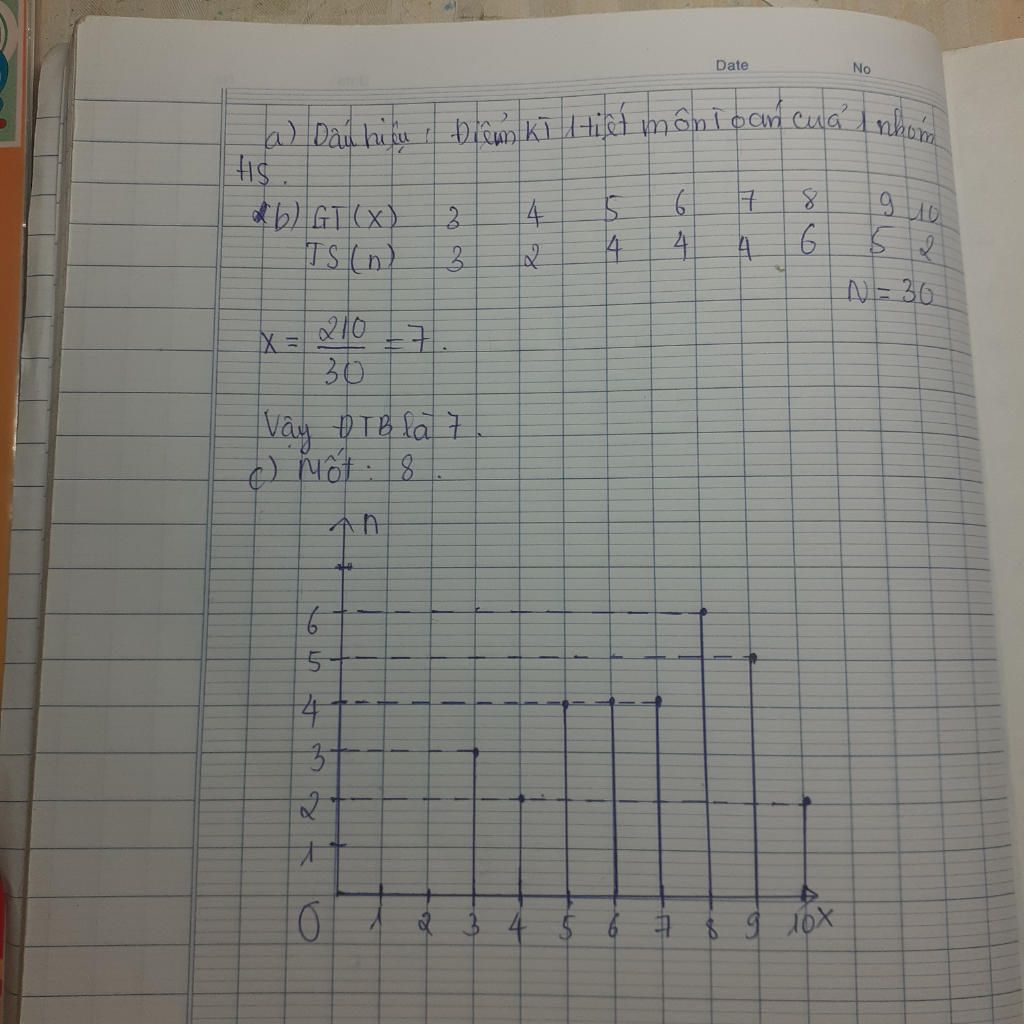 Date No
a) Dấu hiệu : Điểm KT 1 tiết môn Toán của 1 nhóm
HS.
b) GT (x) 3 4 5 6 7 8 9 10
TS (n) 3 2 4 4 4 6 5 2
N = 30
X = 210/30 = 7.
Vậy ĐTB là 7.
c) Mốt : 8.
n
6
5
4
3
2
1
O 1 2 3 4 5 6 7 8 9 10 x